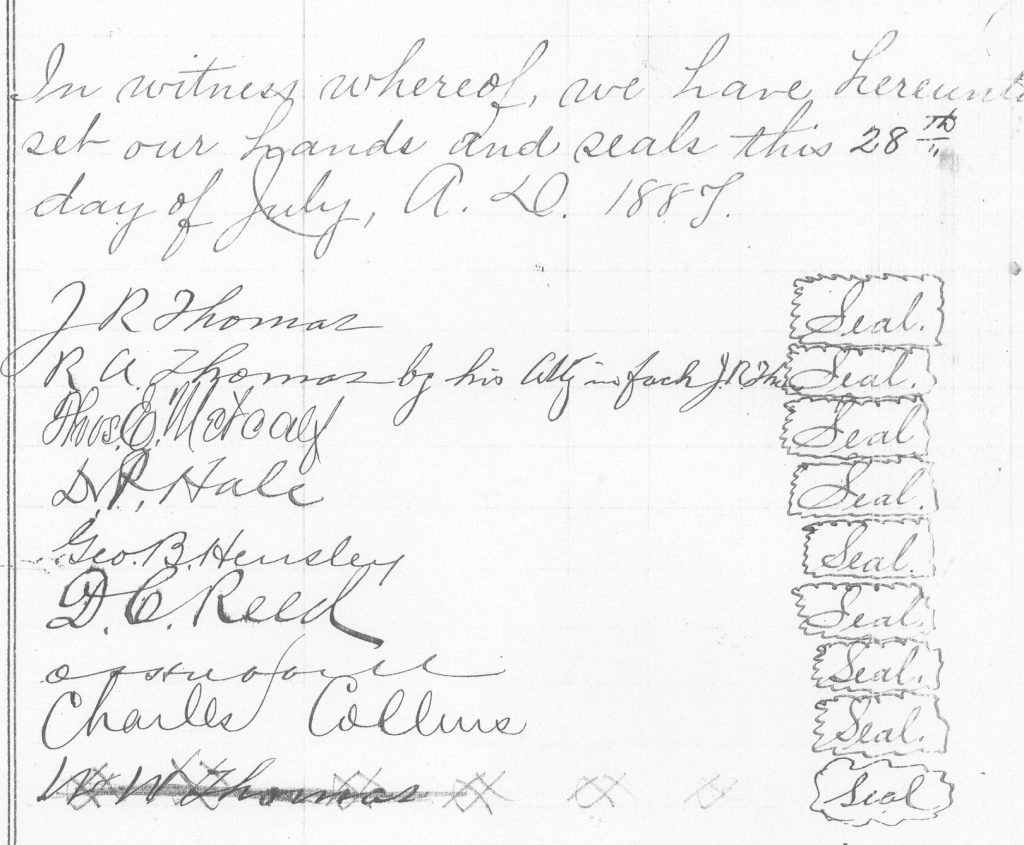 In witness whereof, we have hereunto
set our hands and seals this 28th
day of July, A. D. 1887.
J R Thomas Seal.
R. A. Thomas by his Atty in fact J. R Tho Seal.
Thos. E. Metcalf Seal
D. P. Hale Seal.
Geo. B. Hensley Seal.
D. C. Reed Seal.
Seal.
Charles Collins Seal.
W W Thomas Seal